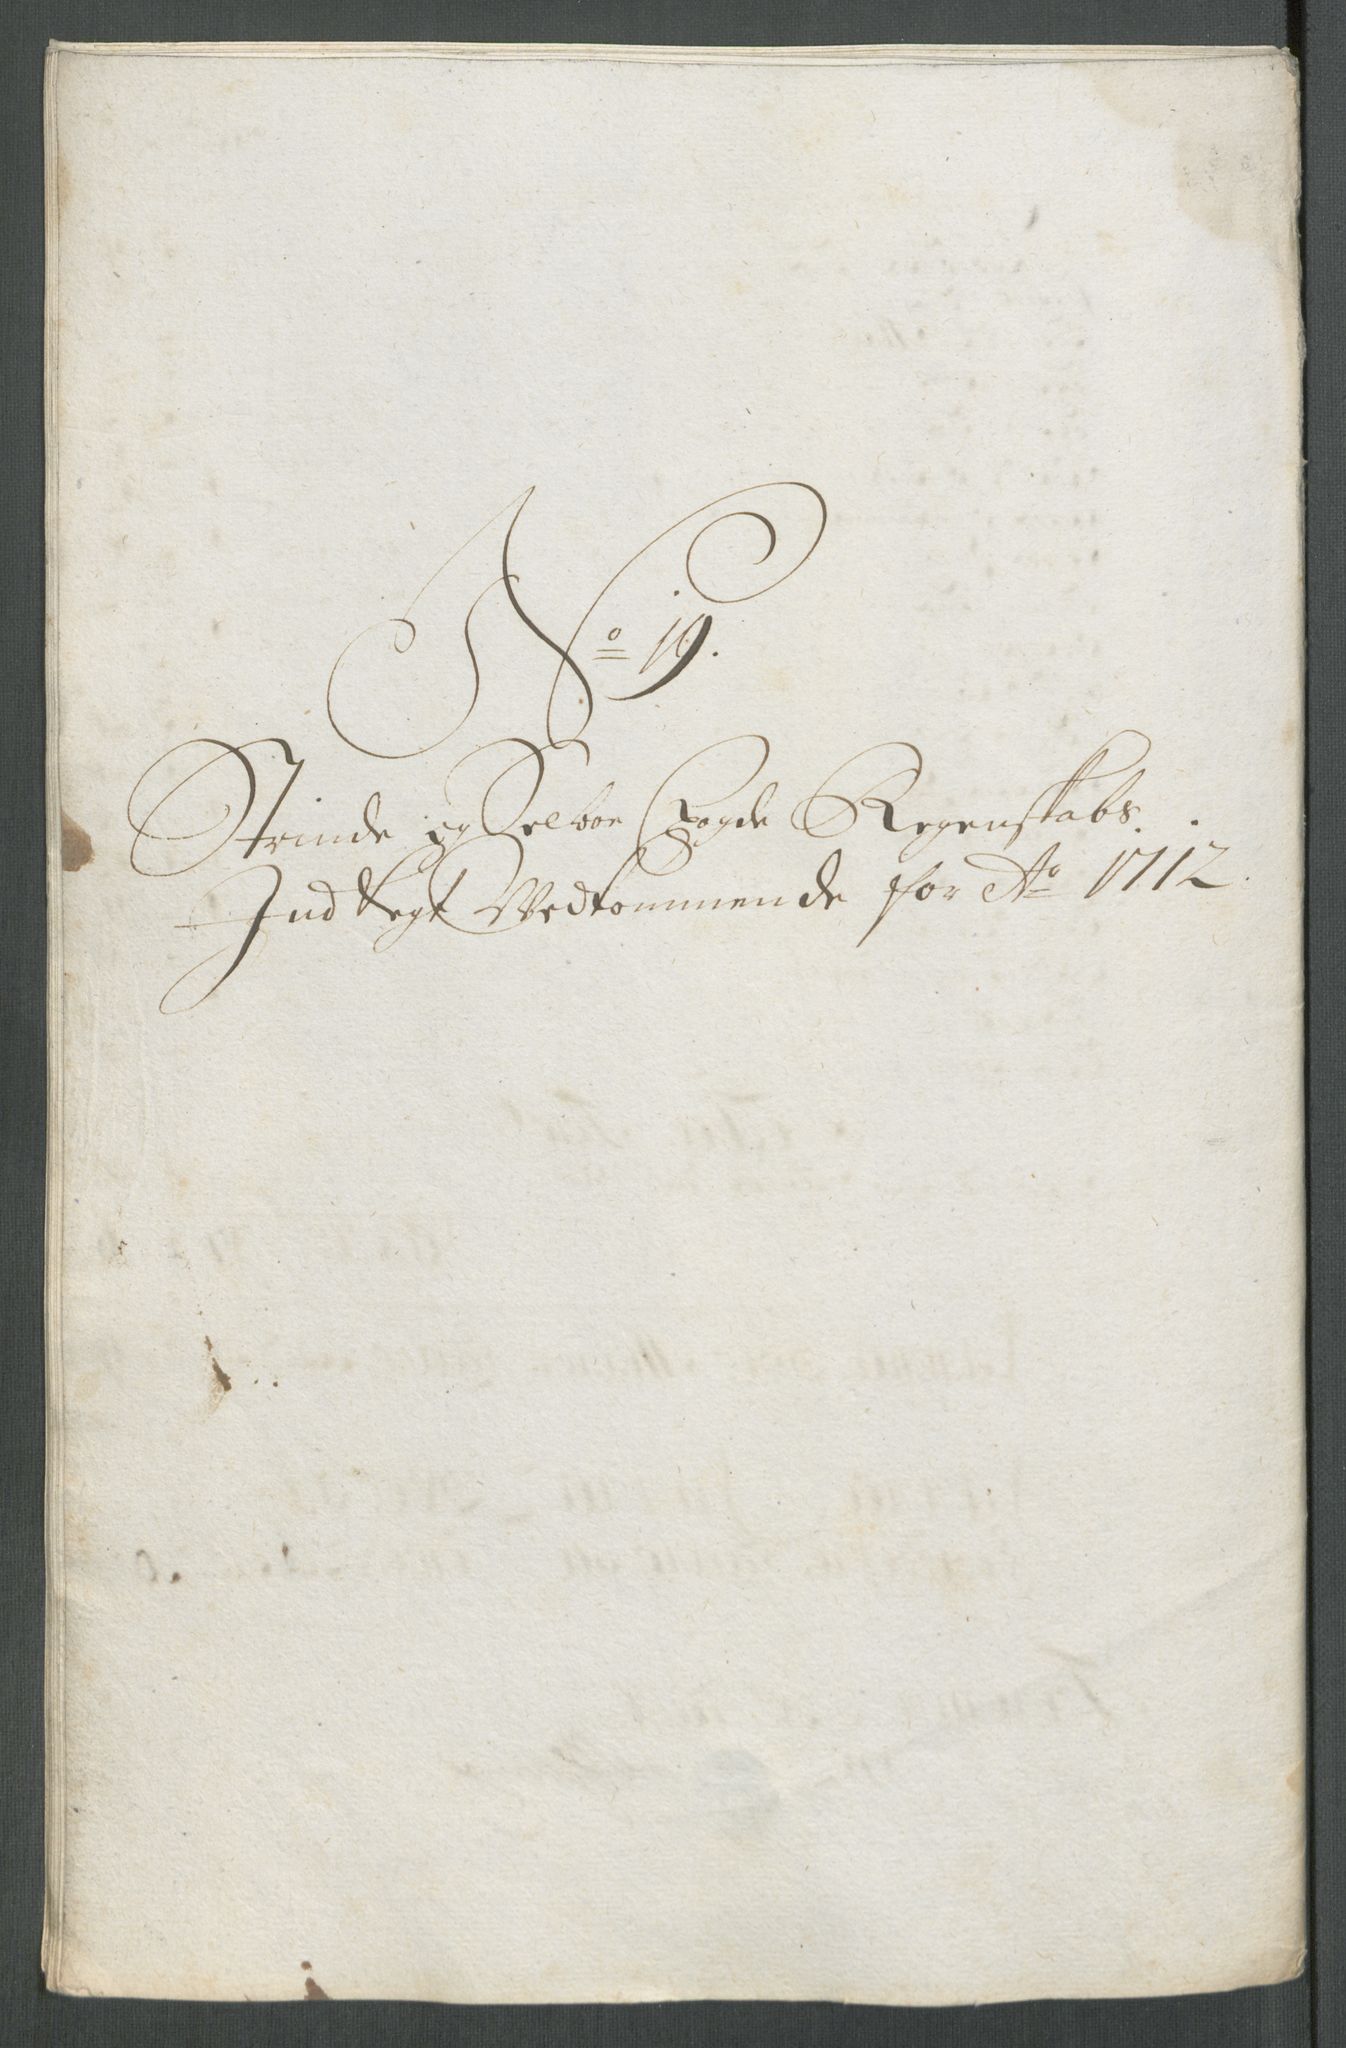 No 19.
Strinde og Selboe Fogde Regenskabs
Indtegt Vedkommende for Ao 1712.